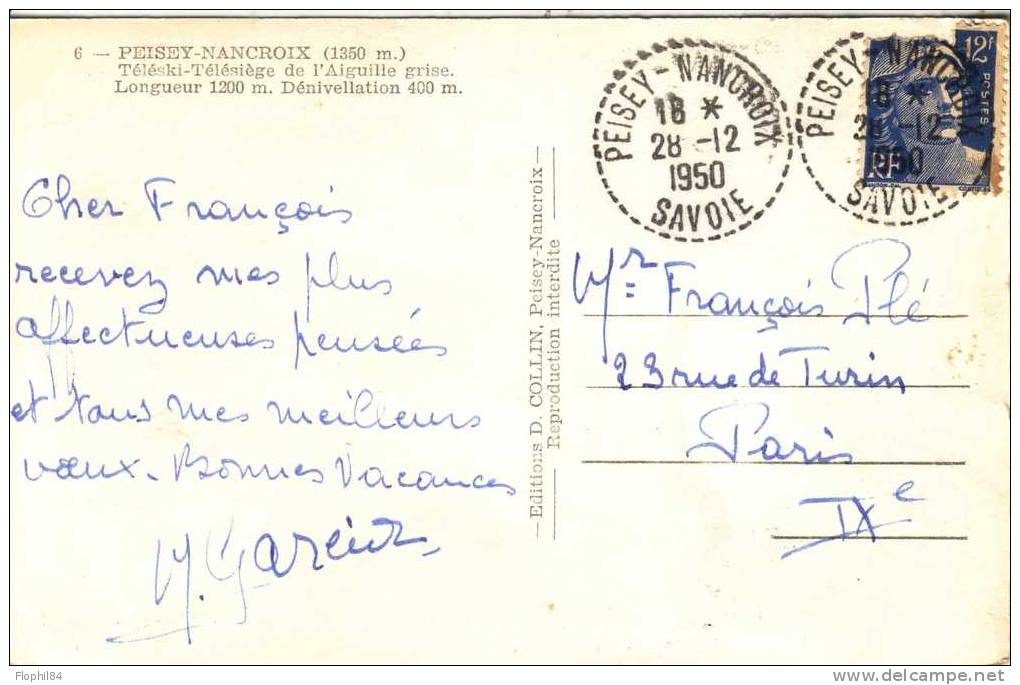 6 — PEISEY-NANCROIX (1350 m.)
Téléski-Télésiège de l'Aiguille grise.
Longueur 1200 m. Dénivellation 400 m.
Cher François
recevez mes plus
affectueuses pensées
et tous mes meilleurs
vœux. Bonnes Vacances
—Editions D. COLLIN, Peisey-Nancroix—
Reproduction interdite
PEISEY-NANCROIX
18 *
28 -12
1950
SAVOIE
PEISEY-NANCROIX
18 *
28 -12
1950
SAVOIE
12f
POSTES
RF
Mr François Plé
23 rue de Turin
Paris
IXe
Flophil84
www.delcampe.net